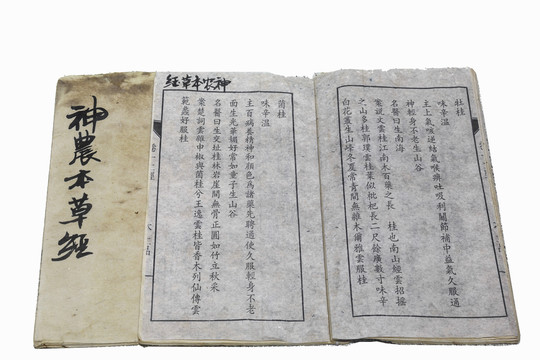 神農本草經
神農本草经
牡桂
味辛溫
主上氣咳逆結氣喉痺吐吸利關節補中益氣久服通
神輕身不老生山谷
名醫曰生南海
案說文云桂江南木百藥之長 桂也南山經云招搖
之山多桂郭璞云桂葉似枇杷長二尺餘廣數寸味辛
白花叢生山峰冬夏常青間無雜木爾雅云
服桂
菌桂
味辛溫
主百病養精神和顏色為諸藥先聘通使久服輕身不老
面生光華媚好常如童子生山谷
名醫曰生交址桂林岩崖間無骨正圓如竹立秋采
案楚詞云雜申椒與菌桂兮王逸云桂皆香木列仙傳云
範蠡好服桂